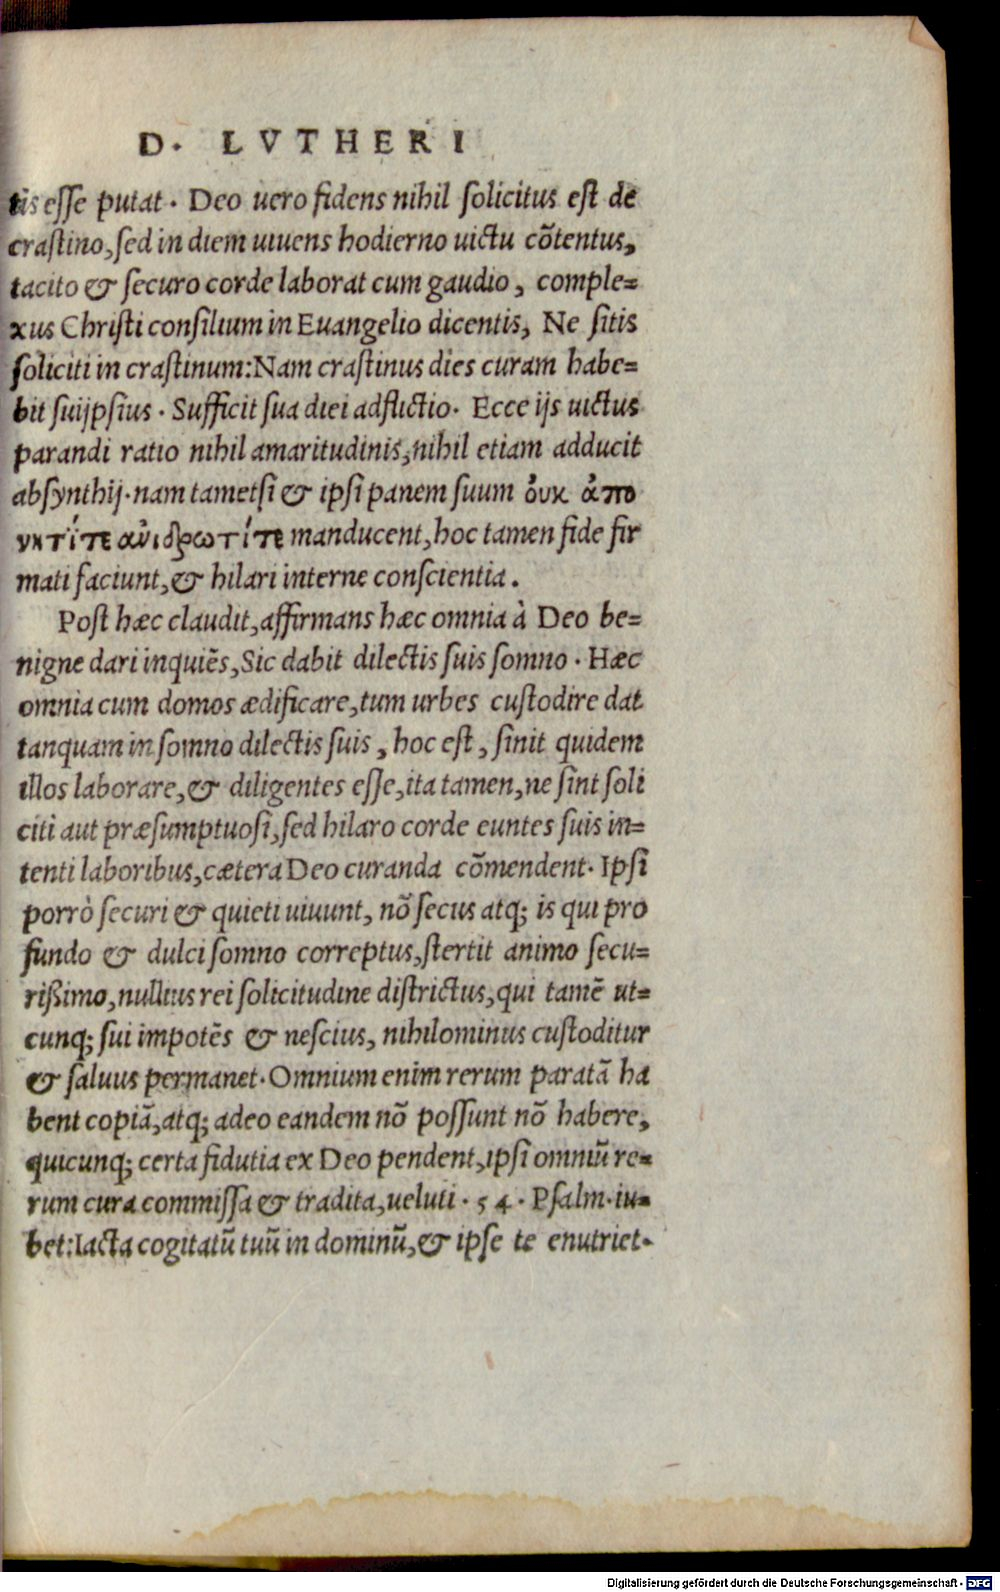 D. LVTHERI
tis esse putat. Deo uero fidens nihil solicitus est de
crastino, sed in diem uiuens hodierno uictu cõtentus,
tacito & securo corde laborat cum gaudio, comple=
xus Christi consilium in Euangelio dicentis, Ne sitis
soliciti in crastinum: Nam crastinus dies curam habe=
bit suijpsius. Sufficit sua diei adflictio. Ecce ijs uictus
parandi ratio nihil amaritudinis, nihil etiam adducit
absynthij. nam tametsi & ipsi panem suum οὐκ ἀπο
νκτίτε ανιδρωτίτε manducent, hoc tamen fide fir
mati faciunt, & hilari interne conscientia.
Post hæc claudit, affirmans hæc omnia à Deo be=
nigne dari inquiẽs, Sic dabit dilectis suis somno. Hæc
omnia cum domos ædificare, tum urbes custodire dat
tanquam in somno dilectis suis, hoc est, sinit quidem
illos laborare, & diligentes esse, ita tamen, ne sint soli
citi aut præsumptuosi, sed hilaro corde euntes suis in=
tenti laboribus, cætera Deo curanda cõmendent. Ipsi
porrò securi & quieti uiuunt, nõ secus atq; is qui pro
fundo & dulci somno correptus, stertit animo secu=
rißimo, nullius rei solicitudine districtus, qui tamẽ ut=
cunq; sui impotẽs & nescius, nihilominus custoditur
& saluus permanet. Omnium enim rerum paratã ha
bent copiã, atq; adeo eandem nõ possunt nõ habere,
quicunq; certa fidutia ex Deo pendent, ipsi omniũ re=
rum cura commissa & tradita, ueluti. 54. Psalm. iu=
bet: Iacta cogitatũ tuũ in dominũ, & ipse te enutriet.
Digitalisierung gefördert durch die Deutsche Forschungsgemeinschaft - DFG